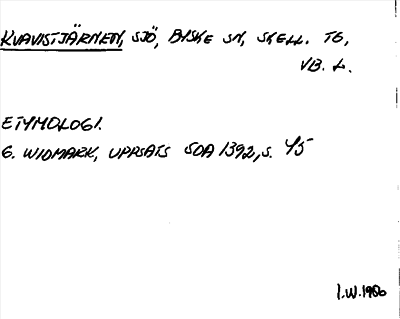 KVAVISTJÄRNEN, SJÖ, BYSKE SN, SKELL. TG,
VB. L.
ETYMOLOGI.
G. WIDMARK, UPPSATS SOA 1392, S. 45
I.W. 1980